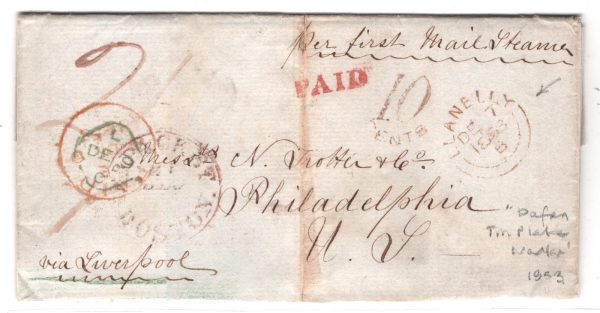 per first Mail Steamer
PAID
2/
16
CENTS
LLANELLY
DE 7
1853
BOSTON
Mess.rs N. Trotter & Co
Philadelphia
U. S.
via Liverpool
"Dafen
Tin Plate
Works"
1853